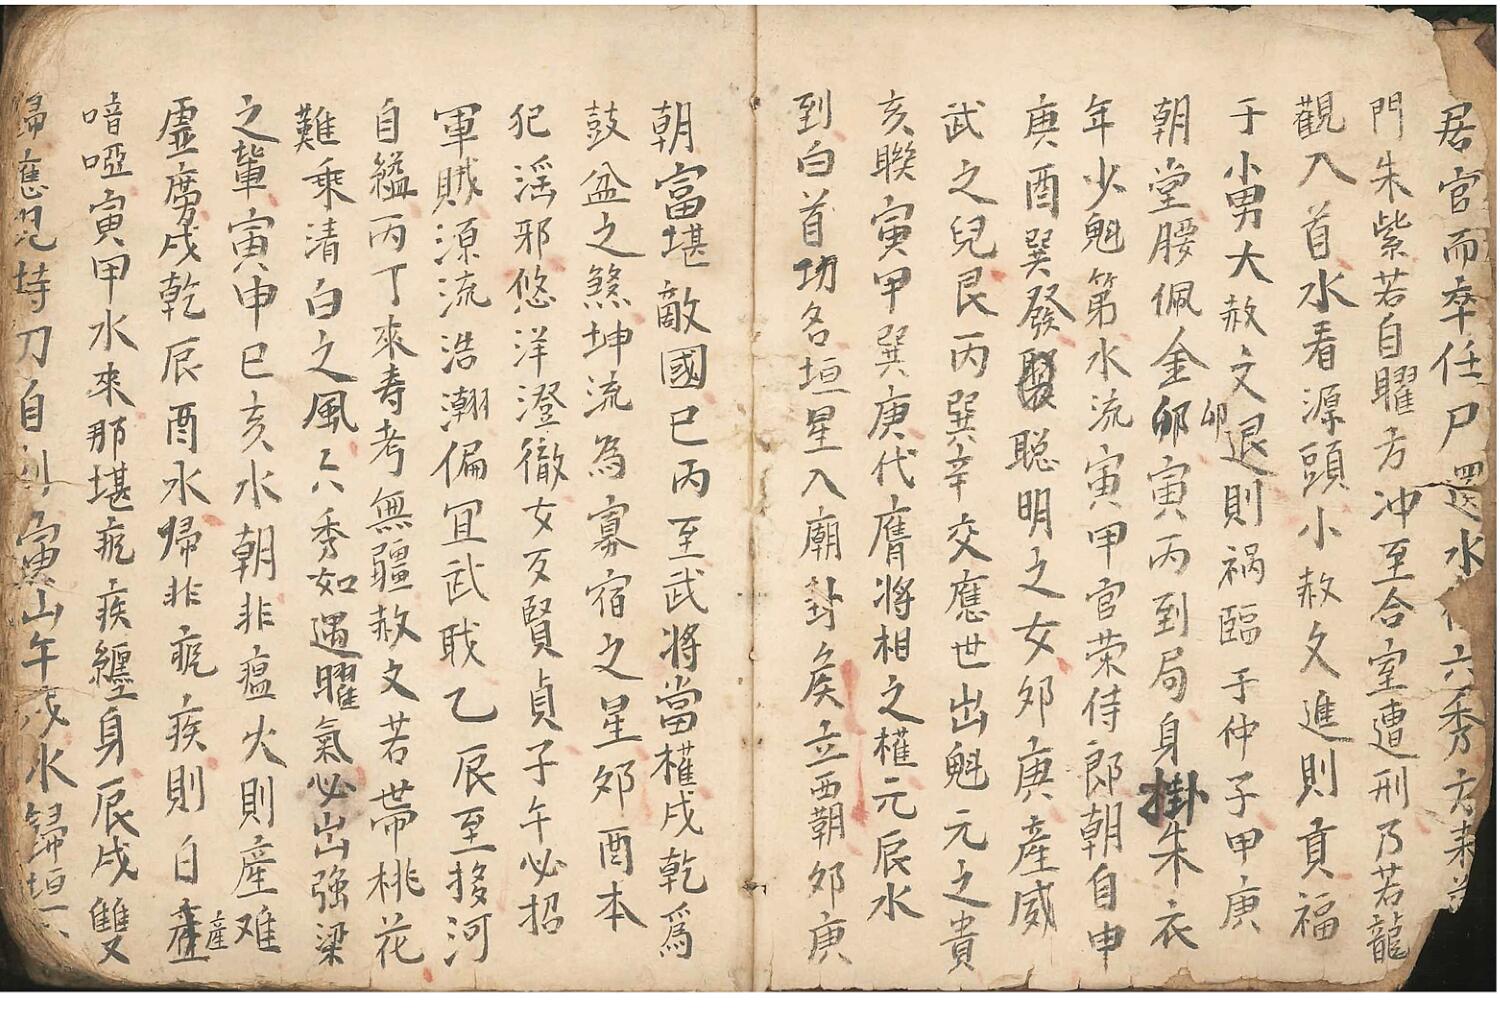 居官而卒任尸還水 六秀方来
門朱紫若自曜方冲至合室遭刑乃若龍
觀入首水看源頭小赦文進則貢福
于小男大赦文退則祸臨于仲子甲庚
朝堂腰佩金卯卯寅丙到局身掛朱衣
年少魁第水流寅甲官荣侍郎朝自申
庚酉巽發聪明之女夘庚產威
武之兒艮丙巽辛交應世出魁元之貴
亥聨寅甲巽庚代膺将相之權元辰水
到白首功名垣星入廟封侯立西朝夘庚
朝富堪敵國巳丙至武将當權戌乾爲
鼓盆之煞坤流為寡宿之星夘酉本
犯滛邪悠洋澄徹女反賢貞子午必招
軍賊源流浩潮偏冝武戝乙辰至拸河
自縊丙丁來寿考無疆赦文若帶桃花
難乘清白之風六秀如遇曜氣必出强梁
之輩寅申巳亥水朝非瘟火則產难
虛癆戌乾辰酉水帰非疷疾則白產
喑啞寅甲水來那堪疷疾纏身辰戌雙
歸應見持刀自 寅山午戌水歸垣六